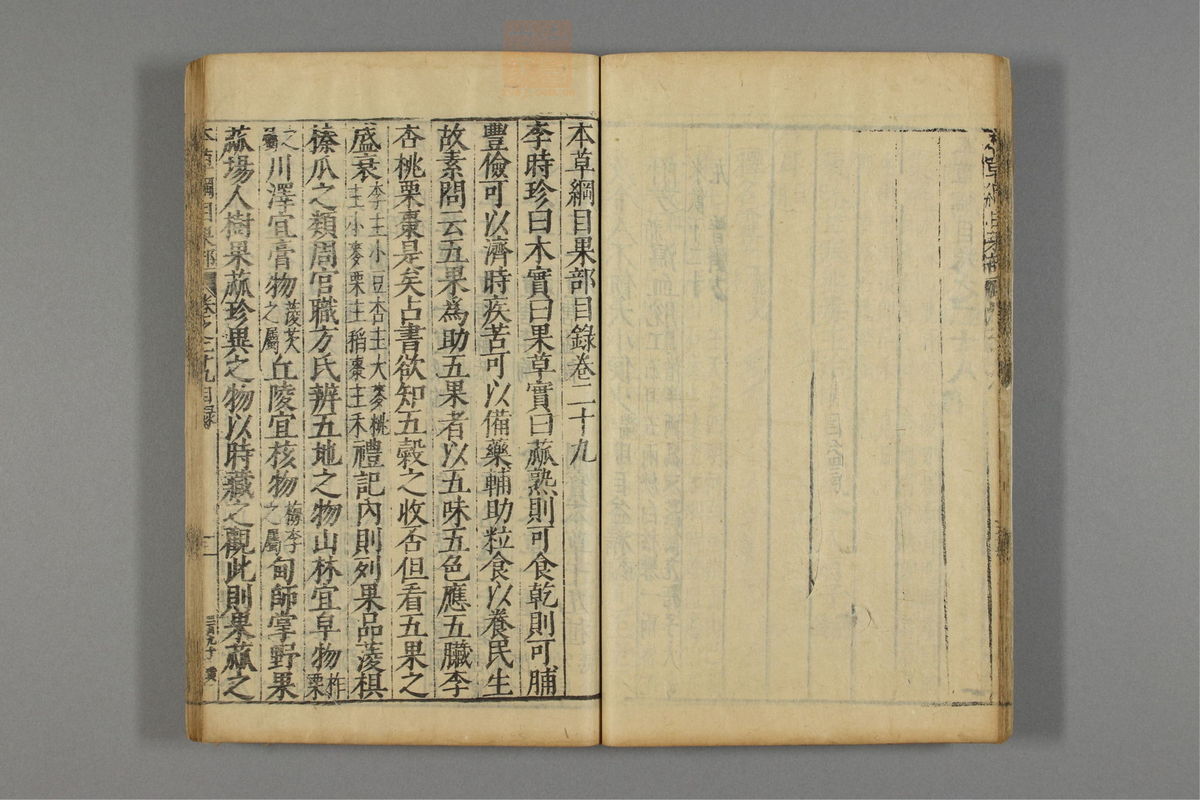 本草綱目果部目錄卷二十九
李時珍曰木實曰果草實曰蓏熟則可食乾則可脯
豐儉可以濟時疾苦可以備藥輔助粒食以養民生
故素問云五果爲助五果者以五味五色應五臟李
杏桃栗棗是矣占書欲知五穀之收否但看五果之
盛衰李主小豆杏主大麥桃主小麥栗主稻棗主禾禮記內則列果品菱椇
榛瓜之類周官職方氏辨五地之物山林宜皁物柞栗
之屬川澤宜膏物菱芡之屬丘陵宜核物梅李之屬甸師掌野果
蓏場人樹果蓏珍異之物以時藏之觀此則果蓏之
本草綱目果部 卷之二十九目錄 一